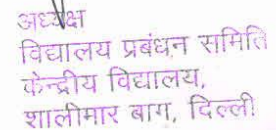 अध्यक्ष
विद्यालय प्रबंधन समिति
केन्द्रीय विद्यालय,
शालीमार बाग, दिल्ली